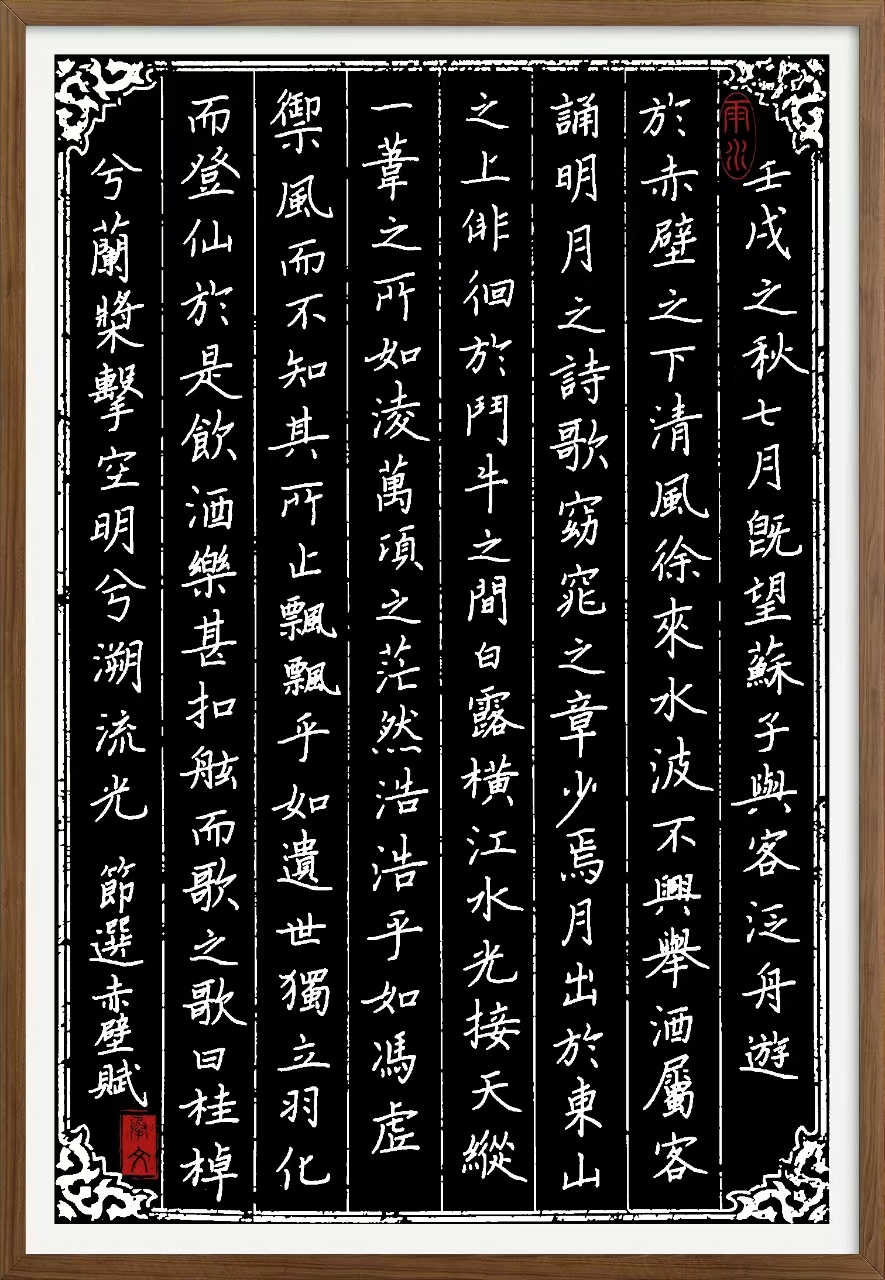 雨水
壬戌之秋七月既望蘇子與客泛舟遊
於赤壁之下清風徐來水波不興舉酒屬客
誦明月之詩歌窈窕之章少焉月出於東山
之上徘徊於鬥牛之間白露橫江水光接天縱
一葦之所如淩萬項之茫然浩浩乎如馮虛
禦風而不知其所止飄飄乎如遺世獨立羽化
而登仙於是飲酒樂甚扣舷而歌之歌曰桂棹
兮蘭槳擊空明兮溯流光 節選赤壁賦